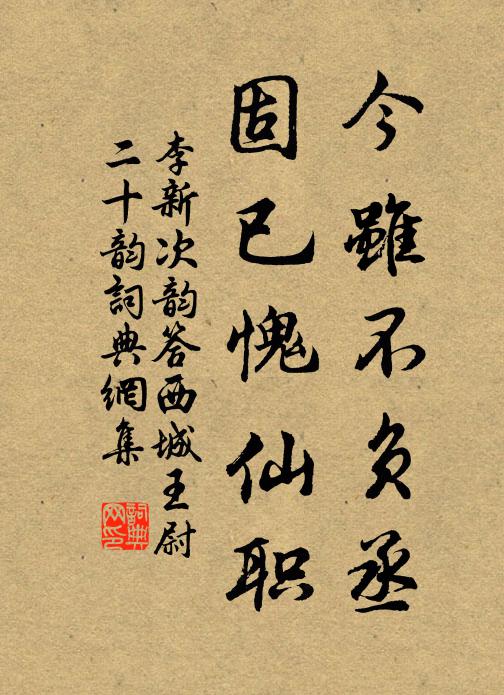 今雖不负丞
固已愧仙职
李新次韵答西城王尉
二十韵詞典網集
詞典
网印